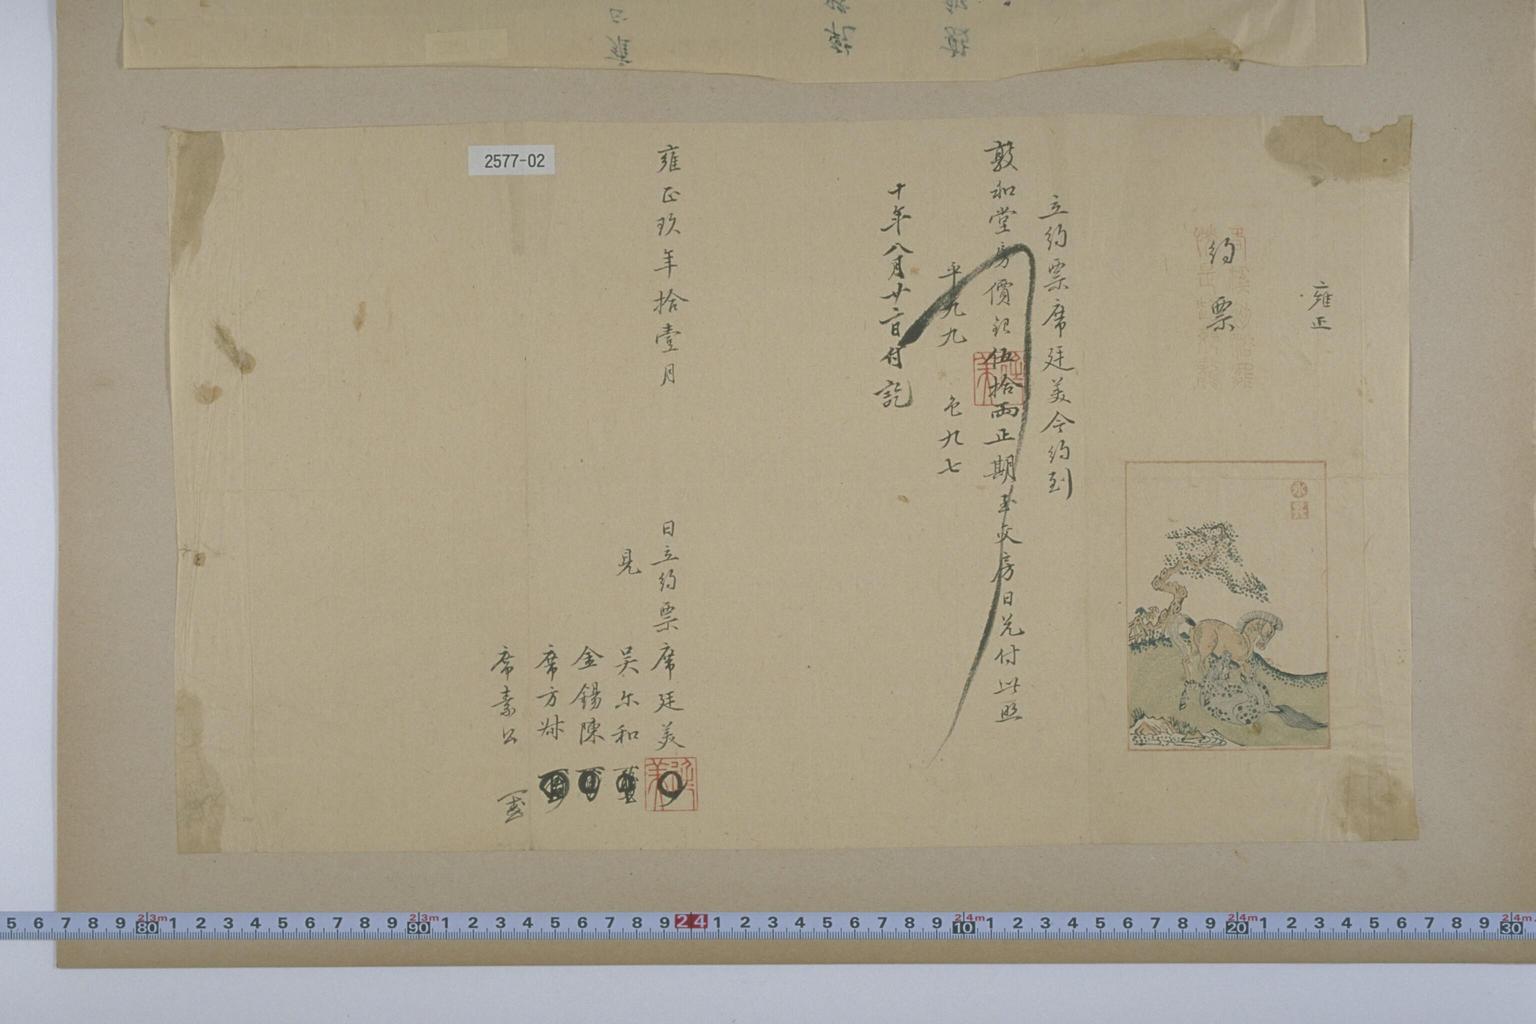 雍正
約票
立約票席廷美今約到
敦和堂房價銀伍拾兩正期至交房日兑付此照
平九九 色九七
十年八月廿二日付訖
雍正玖年拾壹月 日立約票席廷美
見 吴尔和
金錫陳
席方
席素公
2577-02
5 6 7 8 9 80 1 2 3 4 5 6 7 8 9 90 1 2 3 4 5 6 7 8 9 24 1 2 3 4 5 6 7 8 9 10 1 2 3 4 5 6 7 8 9 20 1 2 3 4 5 6 7 8 9 30